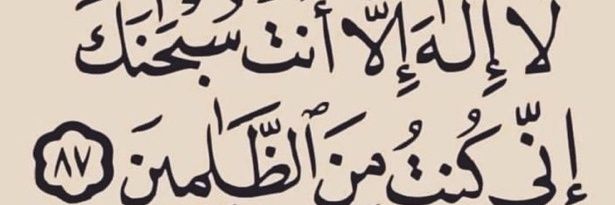 لَّا إِلَٰهَ إِلَّا أَنتَ سُبْحَٰنَكَ
إِنِّي كُنتُ مِنَ ٱلظَّٰلِمِينَ ٨٧